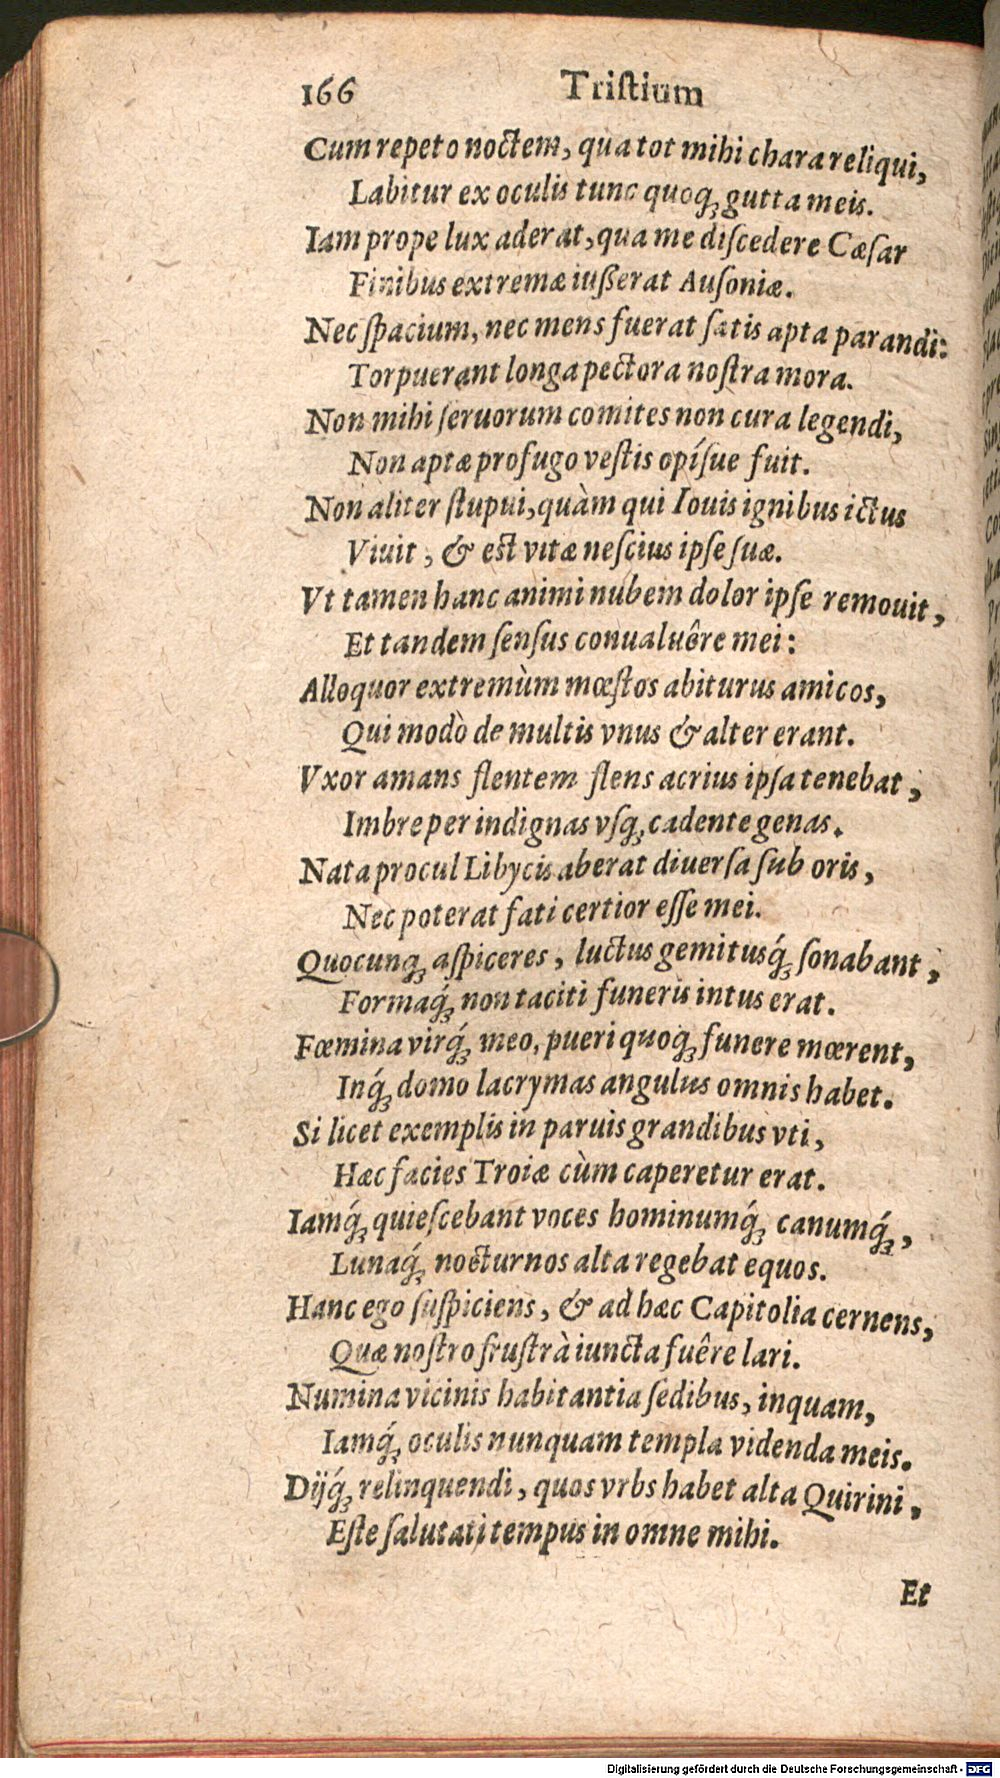 166 Triſtium
Cum repeto noctem, qua tot mihi chara reliqui,
Labitur ex oculis tunc quoq; gutta meis.
Iam prope lux aderat, qua me diſcedere Cæſar
Finibus extremæ iußerat Auſoniæ.
Nec ſpacium, nec mens fuerat ſatis apta parandi:
Torpuerant longa pectora noſtra mora.
Non mihi ſeruorum comites non cura legendi,
Non aptæ profugo veſtis opíſue fuit.
Non aliter ſtupui, quàm qui Iouis ignibus ictus
Viuit, & est vitæ neſcius ipſe ſuæ.
Vt tamen hanc animi nubem dolor ipſe remouit,
Et tandem ſenſus conualuêre mei:
Alloquor extremùm mœſtos abiturus amicos,
Qui modò de multis vnus & alter erant.
Vxor amans flentem flens acrius ipſa tenebat,
Imbre per indignas vſq; cadente genas.
Nata procul Libycis aberat diuerſa ſub oris,
Nec poterat fati certior eſſe mei.
Quocunq; aſpiceres, luctus gemitusq́; ſonabant,
Formaq́; non taciti funeris intus erat.
Fœmina virq́; meo, pueri quoq; funere mœrent,
Inq́; domo lacrymas angulus omnis habet.
Si licet exemplis in paruis grandibus vti,
Hæc facies Troiæ cùm caperetur erat.
Iamq́; quieſcebant voces hominumq́; canumq́;,
Lunaq́; nocturnos alta regebat equos.
Hanc ego ſuſpiciens, & ad hæc Capitolia cernens,
Quæ noſtro fruſtrà iuncta fuêre lari.
Numina vicinis habitantia ſedibus, inquam,
Iamq́; oculis nunquam templa videnda meis.
Dijq́; relinquendi, quos vrbs habet alta Quirini,
Eſte ſalutati tempus in omne mihi.
Et
Digitalisierung gefördert durch die Deutsche Forschungsgemeinschaft - DFG